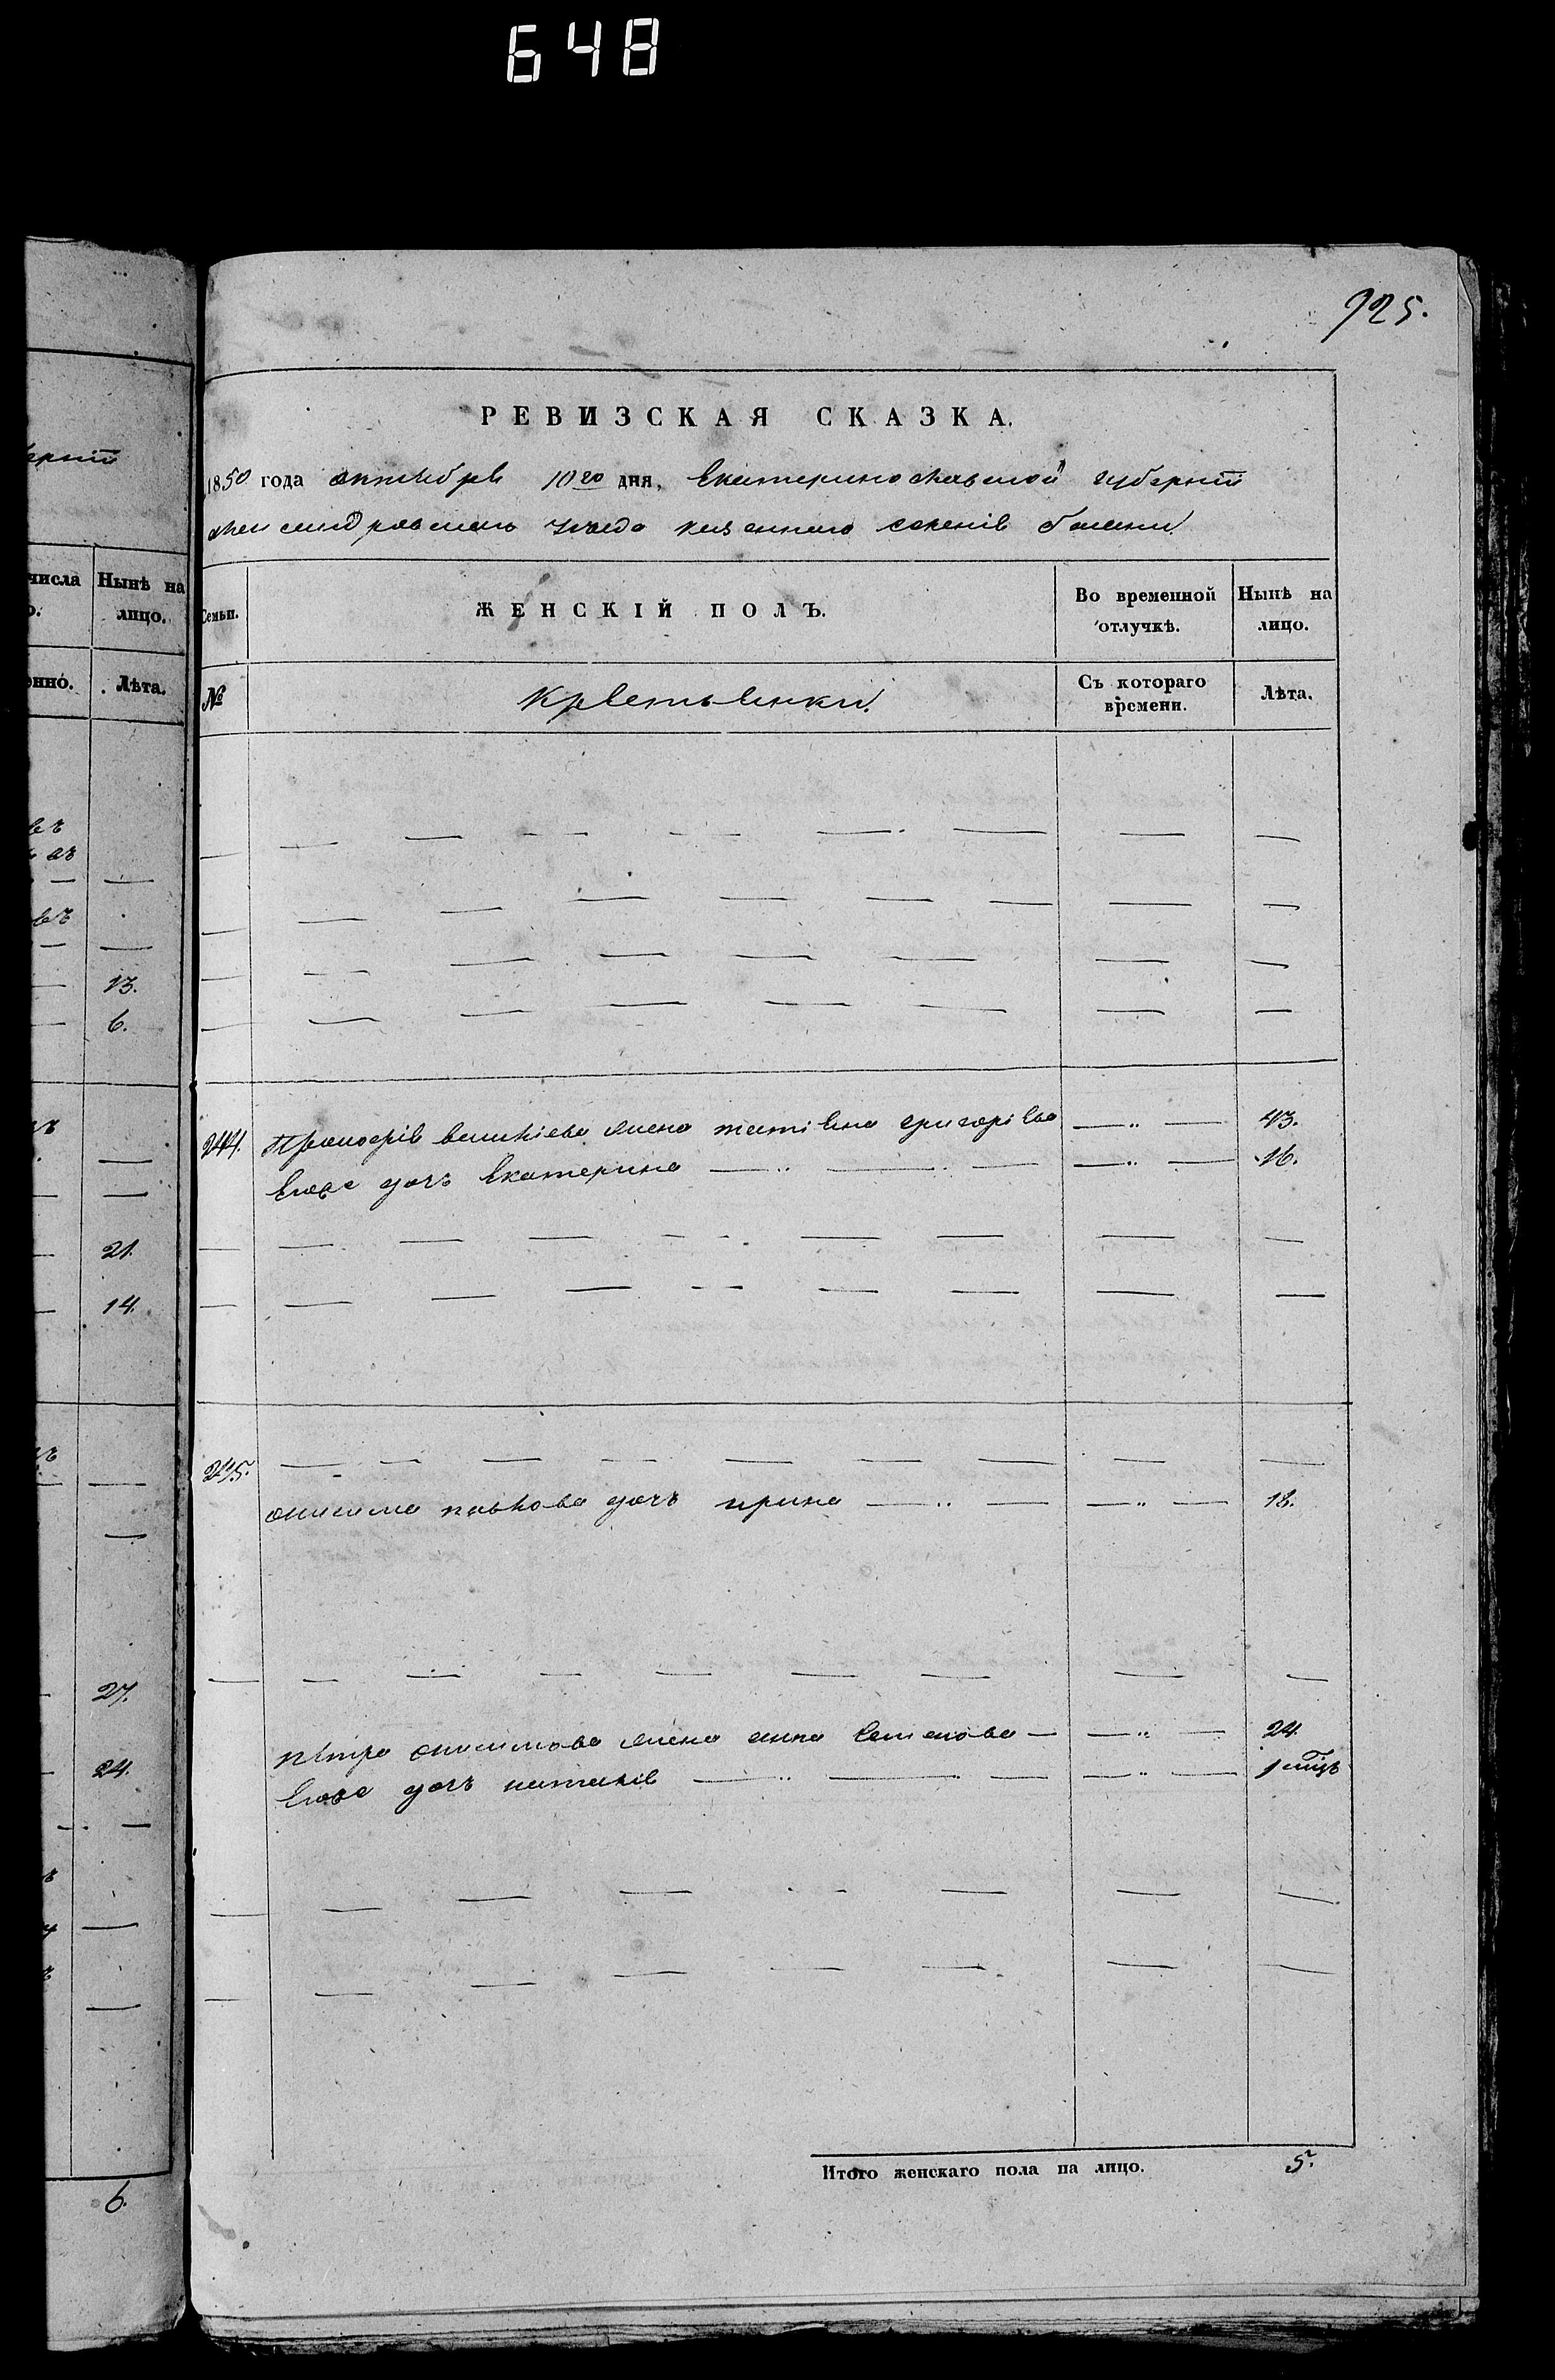 648
925.
РЕВИЗСКАЯ СКАЗКА.
ерніи
1850 года октября 10го дня, Екатеринославской губерніи
Александровскаго уѣзда казеннаго селенія
числа Нынѣ на лицо.
Семьи. ЖЕНСКІЙ ПОЛЪ. Во временной отлучкѣ. Нынѣ на лицо.
Лѣта.
№ Крестьянки. Съ котораго времени. Лѣта.
13.
6.
244. жена Григоріева 43.
Еговс дочъ Екатерина 16.
21.
14.
245.
Онисима Павлова дочъ Ирина 18.
27.
Петра Онисимова жена Анна Семенова 24.
24.
Еговс дочъ Наталія 1 мцъ
Итого женскаго пола на лицо. 5.
6.